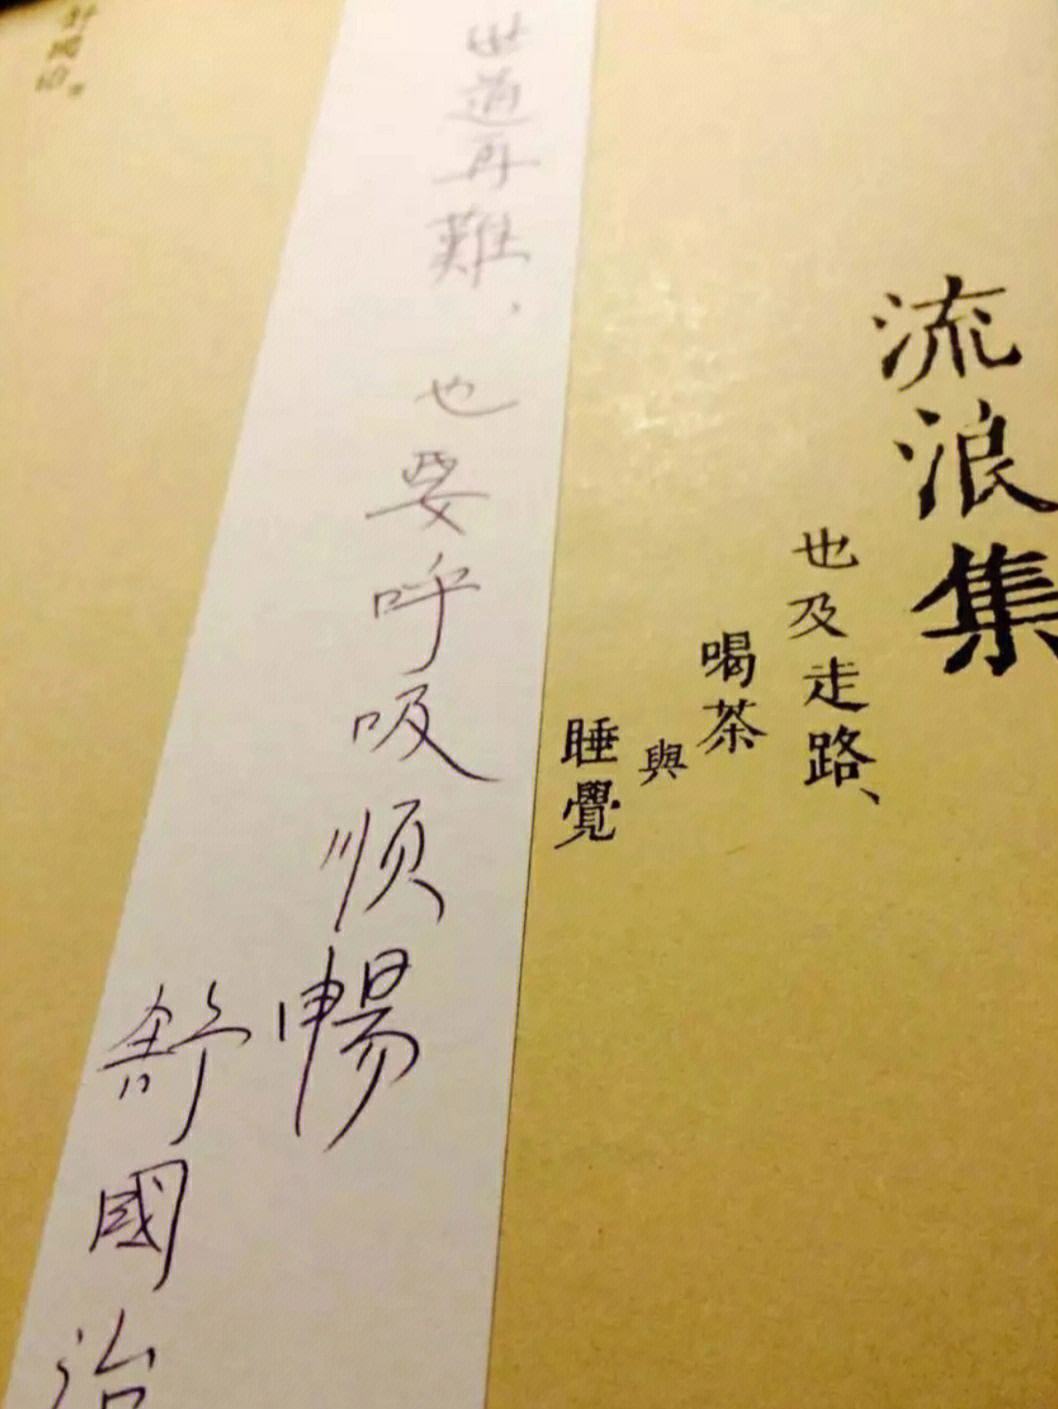 流浪集
也及走路、
喝茶
與
睡覺
世道再難，
也要呼吸順暢
舒國治
舒國治。